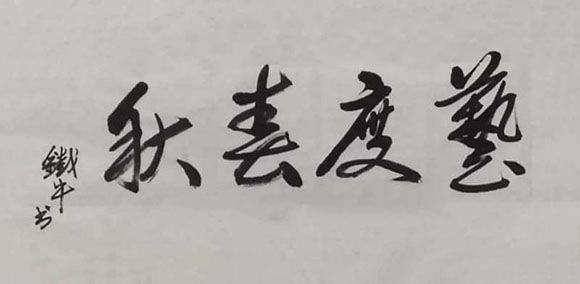 藝度春秋
鐵牛书